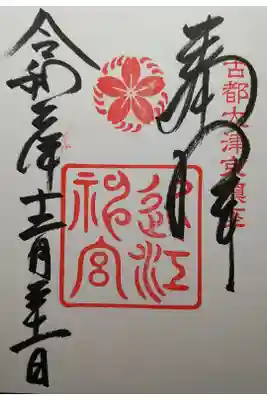 古都大津宮鎮座
奉拝
近江神宮
令和三年十二月三十一日